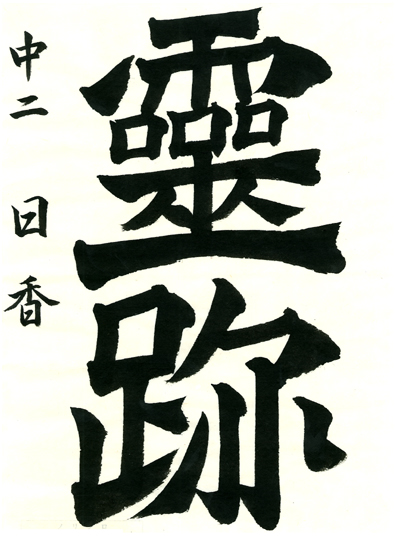 靈跡
中二 日香